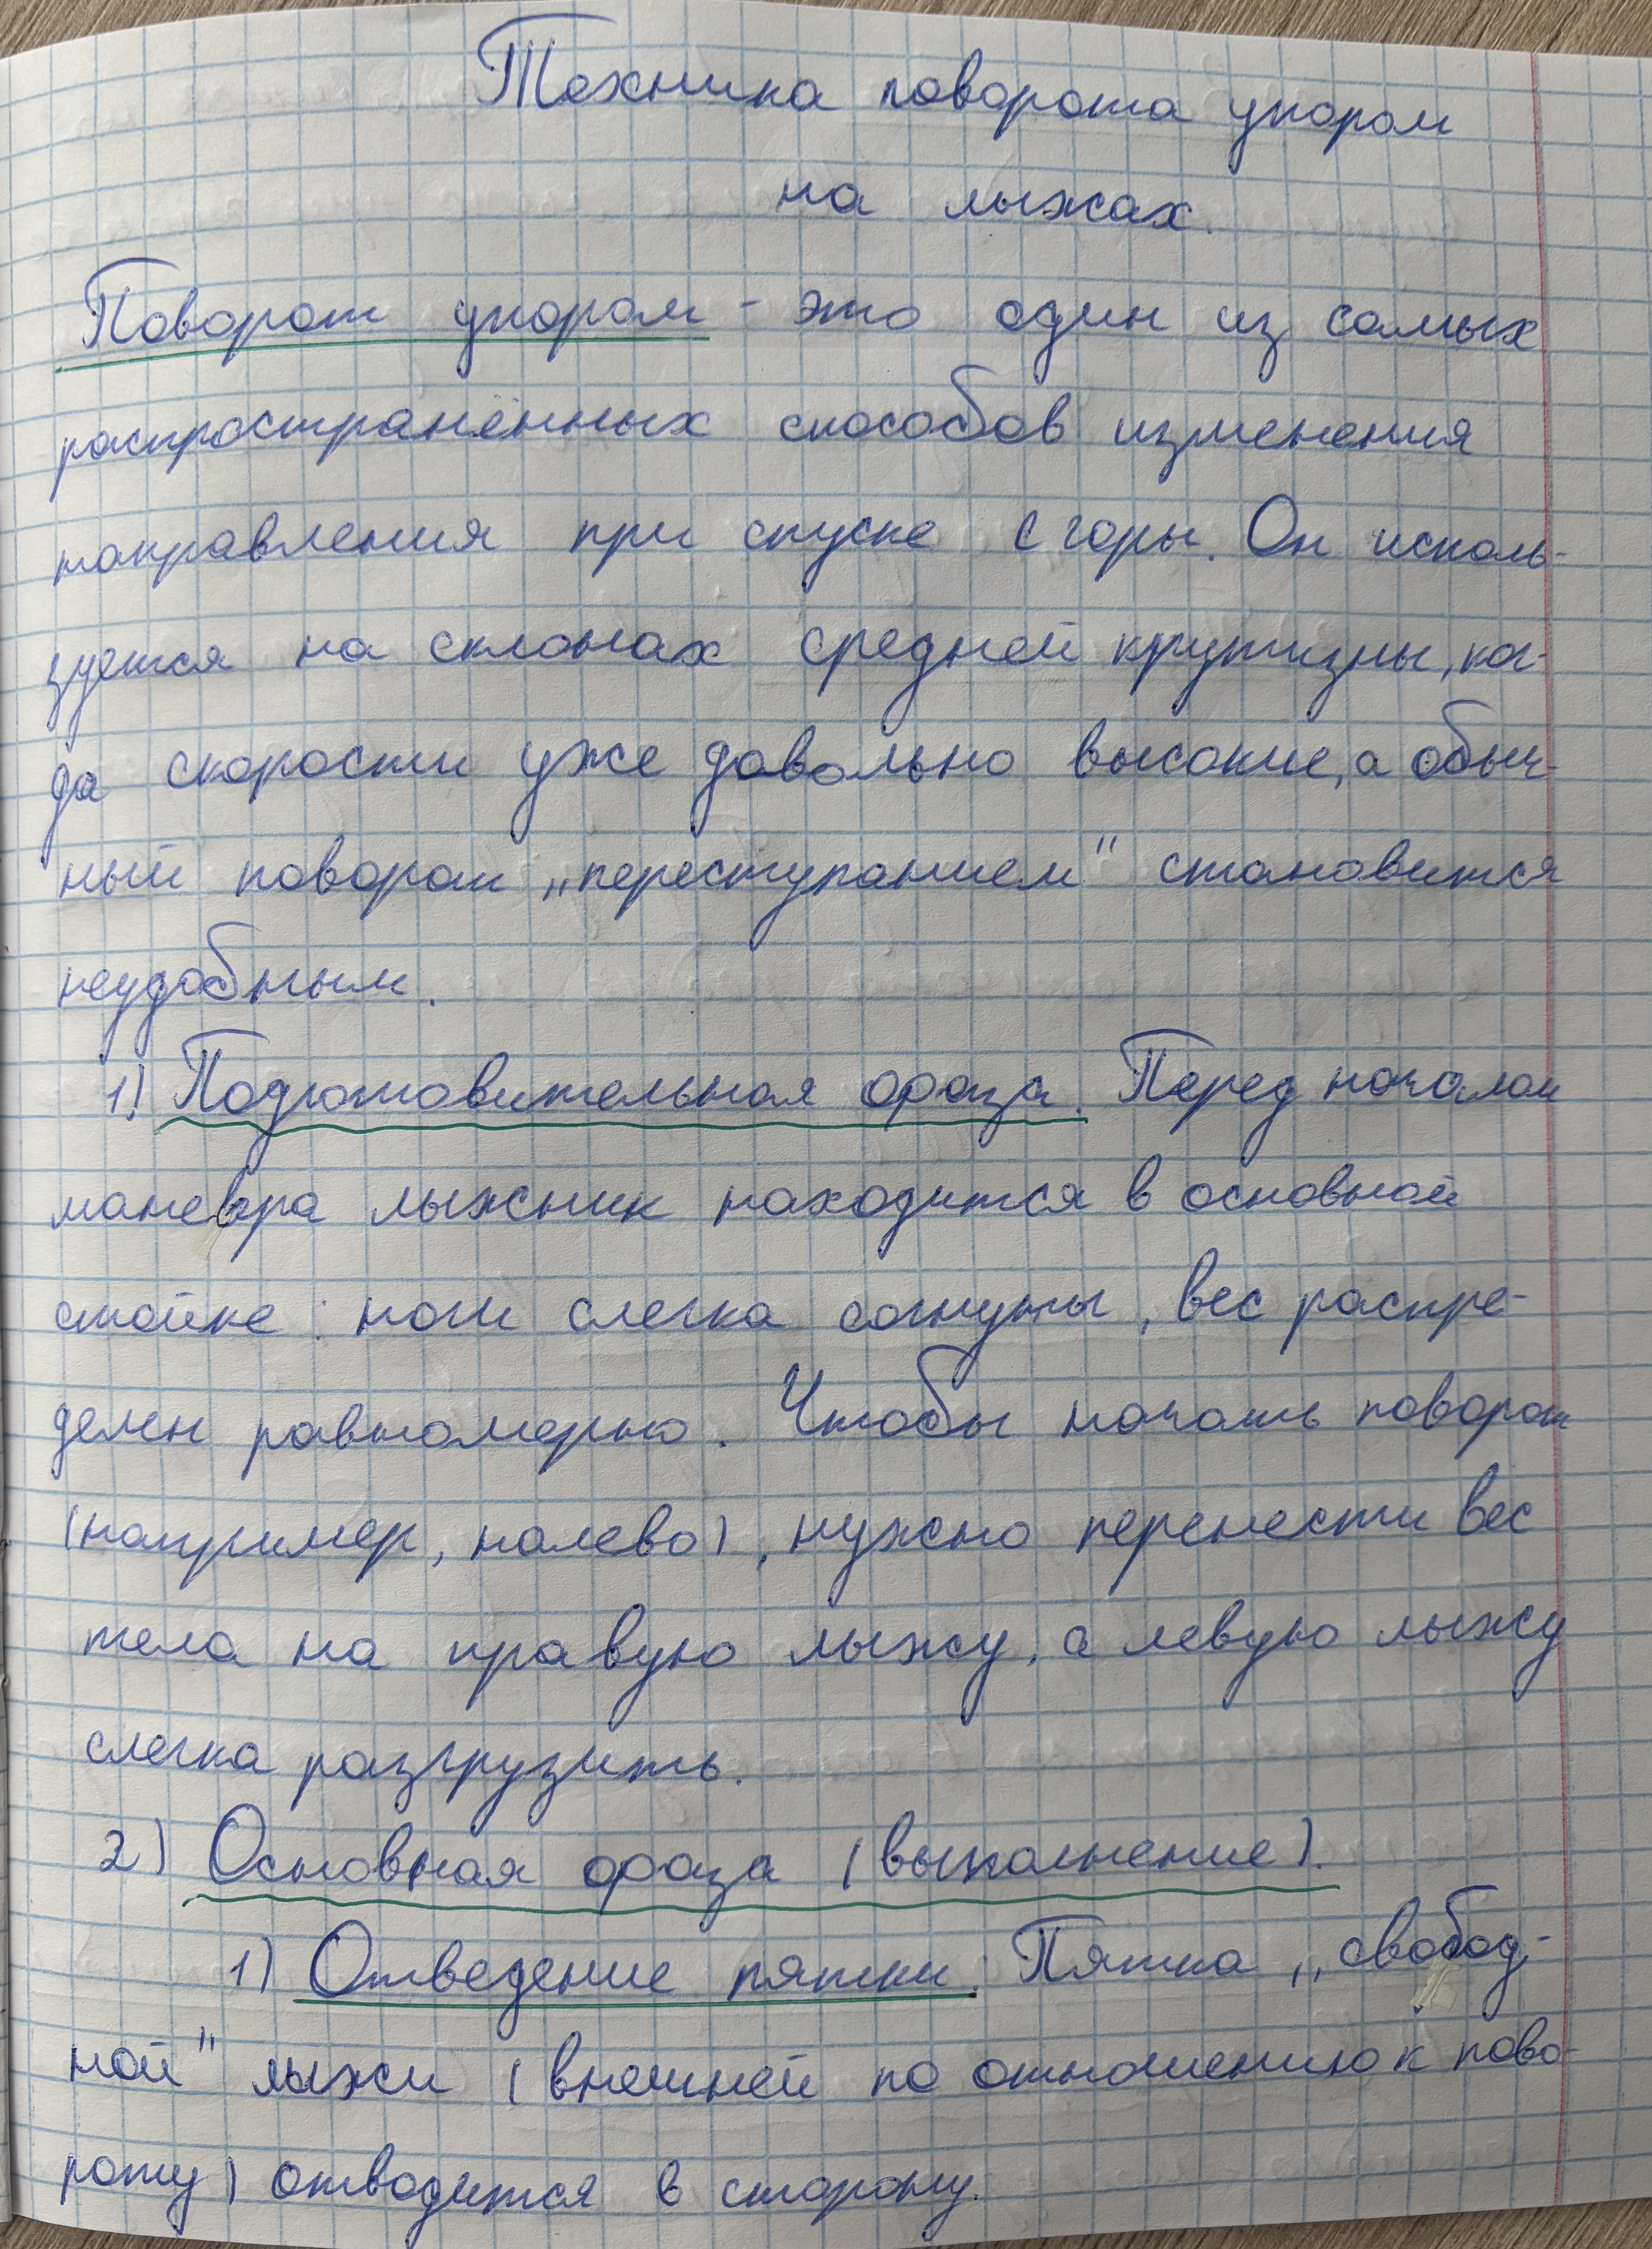 Техника поворота упором
на лыжах.
Поворот упором - это один из самых
распространённых способов изменения
направления при спуске с горы. Он исполь-
зуется на склонах средней крутизны, ког-
да скорости уже довольно высокие, а обыч-
ный поворот „переступанием" становится
неудобным.
1) Подготовительная фраза. Перед началом
маневра лыжник находится в основной
стойке: ноги слегка согнуты, вес распре-
делен равномерно. Чтобы начать поворот
(например, налево), нужно перенести вес
тела на правую лыжу, а левую лыжу
слегка разгрузить.
2) Основная фраза (выполнение).
1) Отведение пятки: Пятка „свобод-
ной" лыжи (внешней по отношению к пово-
роту) отводится в сторону.